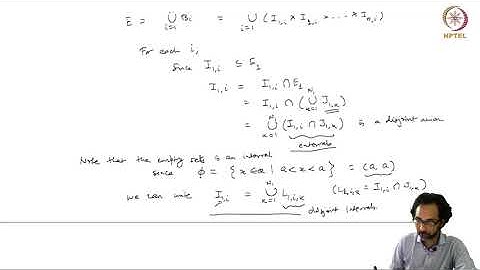 E = ⋃ᵢ₌₁ Bᵢ = ⋃ᵢ₌₁ (I₁,ᵢ × I₂,ᵢ × ... × Iₙ,ᵢ)
NPTEL
For each i,
since I₁,ᵢ ⊆ E₁
I₁,ᵢ = I₁,ᵢ ∩ E₁
= I₁,ᵢ ∩ (⋃_{α=1}^{N₁} J₁,α)
= ⋃_{α=1}^{N₁} (I₁,ᵢ ∩ J₁,α) is a disjoint union
intervals
Note that the empty sets is an interval
since ϕ = {x ∈ a | a < x < a} = (a, a)
We can write I₁,ᵢ = ⋃_{α=1}^{N₁} L₁,ᵢ,α (L₁,ᵢ,α = I₁,ᵢ ∩ J₁,α)
disjoint intervals.